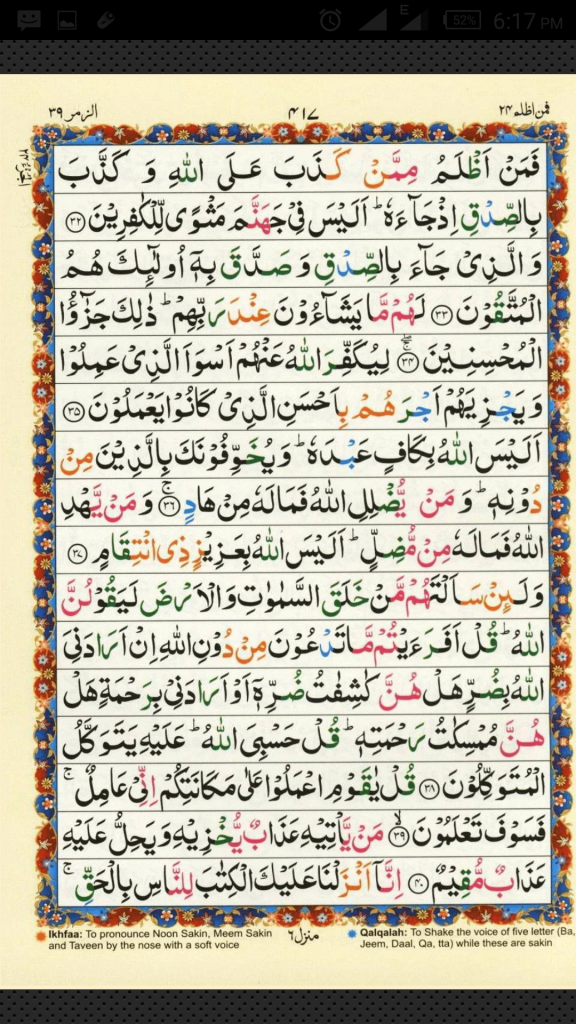 E 52% 6:17 PM
فمن اظلم ٢٤ ٤١٧ الزمر ٣٩
فَمَنْ اَظْلَمُ مِمَّنْ كَذَبَ عَلَى اللّٰهِ وَ كَذَّبَ
بِالصِّدْقِ اِذْجَآءَهٗ ؕ اَلَيْسَ فِيْ جَهَنَّمَ مَثْوًى لِّلْكٰفِرِيْنَ ﴿٣٢﴾
وَ الَّذِيْ جَآءَ بِالصِّدْقِ وَ صَدَّقَ بِهٖۤ اُولٰٓئِكَ هُمُ
الْمُتَّقُوْنَ ﴿٣٣﴾ لَهُمْ مَّا يَشَآءُوْنَ عِنْدَ رَبِّهِمْ ؕ ذٰلِكَ جَزٰٓؤُا
الْمُحْسِنِيْنَ ﴿٣٤﴾ لِيُكَفِّرَ اللّٰهُ عَنْهُمْ اَسْوَاَ الَّذِيْ عَمِلُوْا
وَ يَجْزِيَهُمْ اَجْرَهُمْ بِاَحْسَنِ الَّذِيْ كَانُوْا يَعْمَلُوْنَ ﴿٣٥﴾
اَلَيْسَ اللّٰهُ بِكَافٍ عَبْدَهٗ ؕ وَ يُخَوِّفُوْنَكَ بِالَّذِيْنَ مِنْ
دُوْنِهٖ ؕ وَ مَنْ يُّضْلِلِ اللّٰهُ فَمَالَهٗ مِنْ هَادٍ ﴿٣٦﴾ۚ وَ مَنْ يَّهْدِ
اللّٰهُ فَمَالَهٗ مِنْ مُّضِلٍّ ؕ اَلَيْسَ اللّٰهُ بِعَزِيْزٍ ذِي انْتِقَامٍ ﴿٣٧﴾
وَ لَئِنْ سَاَلْتَهُمْ مَّنْ خَلَقَ السَّمٰوٰتِ وَ الْاَرْضَ لَيَقُوْلُنَّ
اللّٰهُ ؕ قُلْ اَفَرَءَيْتُمْ مَّا تَدْعُوْنَ مِنْ دُوْنِ اللّٰهِ اِنْ اَرَادَنِيَ
اللّٰهُ بِضُرٍّ هَلْ هُنَّ كٰشِفٰتُ ضُرِّهٖۤ اَوْ اَرَادَنِيْ بِرَحْمَةٍ هَلْ
هُنَّ مُمْسِكٰتُ رَحْمَتِهٖ ؕ قُلْ حَسْبِيَ اللّٰهُ ؕ عَلَيْهِ يَتَوَكَّلُ
الْمُتَوَكِّلُوْنَ ﴿٣٨﴾ قُلْ يٰقَوْمِ اعْمَلُوْا عَلٰى مَكَانَتِكُمْ اِنِّيْ عَامِلٌ ۚ
فَسَوْفَ تَعْلَمُوْنَ ﴿٣٩﴾ۙ مَنْ يَّاْتِيْهِ عَذَابٌ يُّخْزِيْهِ وَ يَحِلُّ عَلَيْهِ
عَذَابٌ مُّقِيْمٌ ﴿٤٠﴾ اِنَّاۤ اَنْزَلْنَا عَلَيْكَ الْكِتٰبَ لِلنَّاسِ بِالْحَقِّ ۚ
منزل ٦
Ikhfaa: To pronounce Noon Sakin, Meem Sakin
and Taveen by the nose with a soft voice
Qalqalah: To Shake the voice of five letter (Ba,
Jeem, Daal, Qa, tta) while these are sakin